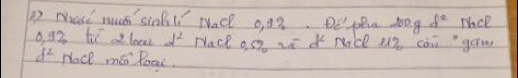 2) Nước muối sinh lí NaCl 0,9%. Để pha 200g d² NaCl
0,9% từ 2 loại d² NaCl 0,5% và d² NaCl 11% cần ? gam
d² NaCl mỗi loại.